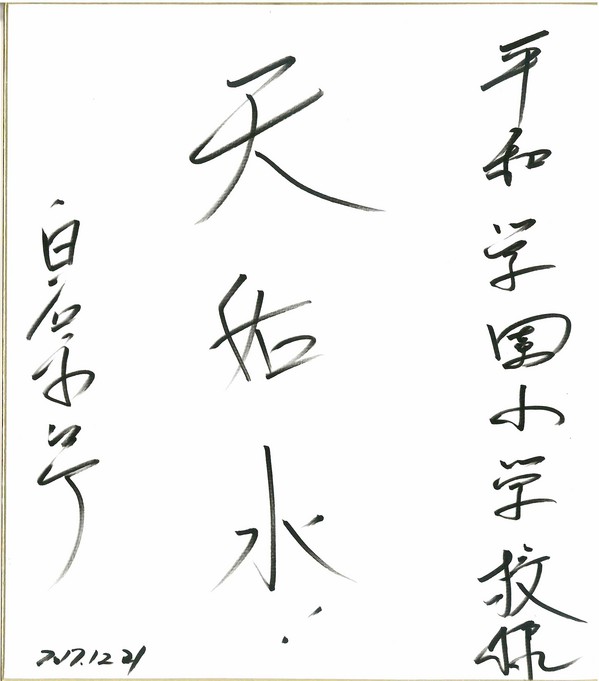 平和学園小学校様
天佑水
白石
2017.12.21